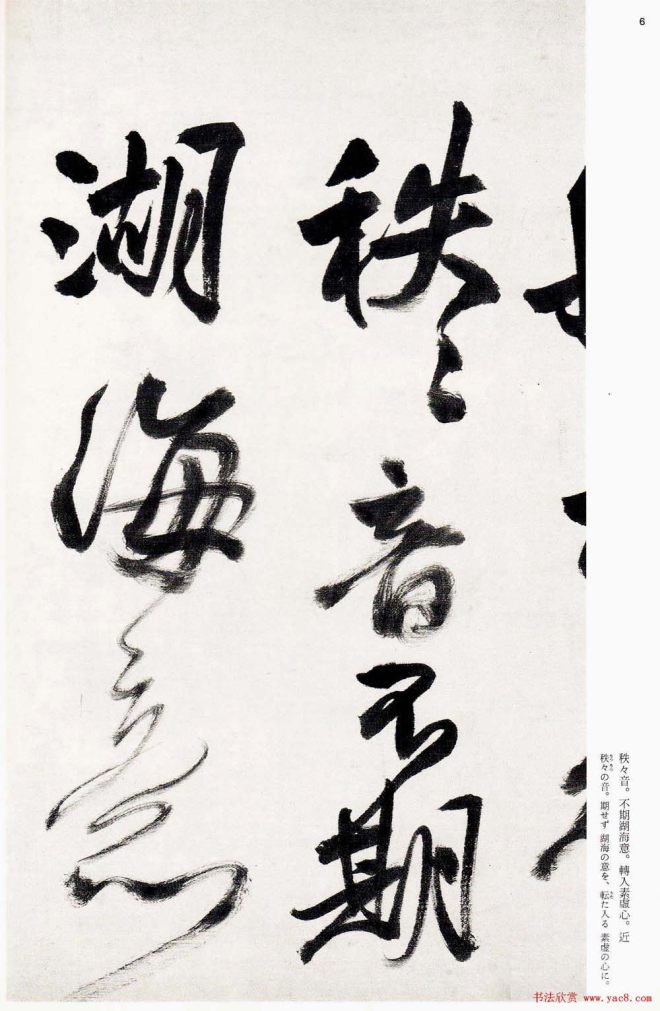 6
秩々音不期
湖海意
秩々音。不期湖海意。轉入素虛心。近
秩々の音。期せず 湖海の意を、転た入る 素虚の心に。
书法欣赏 www.yac8.com